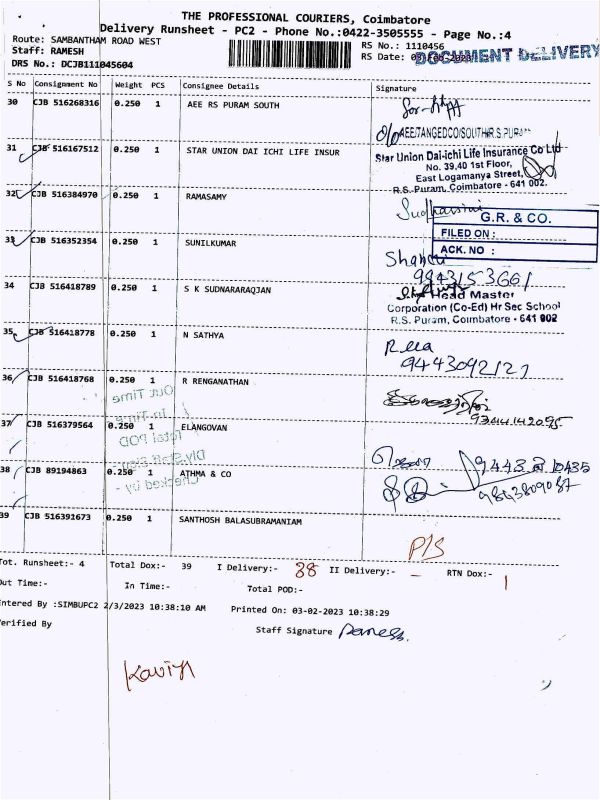 THE PROFESSIONAL COURIERS, Coimbatore
Delivery Runsheet - PC2 - Phone No.:0422-3505555 - Page No.:4
Route: SAMBANTHAM ROAD WEST
RS No.: 1110456
Staff: RAMESH
RS Date: 03-Feb-2023
DOCUMENT DELIVERY
DRS No.: DCJB111045604
S No Consignment No Weight PCS Consignee Details Signature
30 CJB 516268316 0.250 1 AEE RS PURAM SOUTH
AEE/TANGEDCO/SOUTH/R.S.PURAM
31 CJB 516167512 0.250 1 STAR UNION DAI ICHI LIFE INSUR
Star Union Dai-ichi Life Insurance Co Ltd
No. 39,40 1st Floor,
East Logamanya Street,
R.S. Puram, Coimbatore - 641 002.
32 CJB 516384970 0.250 1 RAMASAMY
G.R. & CO.
FILED ON :
ACK. NO :
33 CJB 516352354 0.250 1 SUNILKUMAR
9943153661
34 CJB 516418789 0.250 1 S K SUDNARARAQJAN
Head Master
Corporation (Co-Ed) Hr Sec School
R.S. Puram, Coimbatore - 641 002
35 CJB 516418778 0.250 1 N SATHYA
9443092121
36 CJB 516418768 0.250 1 R RENGANATHAN
Out Time
In Time
9344142095
37 CJB 516379564 0.250 1 ELANGOVAN
Total POD
38 CJB 89194863 0.250 1 ATHMA & CO
Checked by -
9843809087
39 CJB 516391673 0.250 1 SANTHOSH BALASUBRAMANIAM
P/S
Tot. Runsheet:- 4 Total Dox:- 39 I Delivery:- 38 II Delivery:- - RTN Dox:- 1
Out Time:- In Time:- Total POD:-
Entered By :SIMBUPC2 2/3/2023 10:38:10 AM Printed On: 03-02-2023 10:38:29
Verified By
Staff Signature